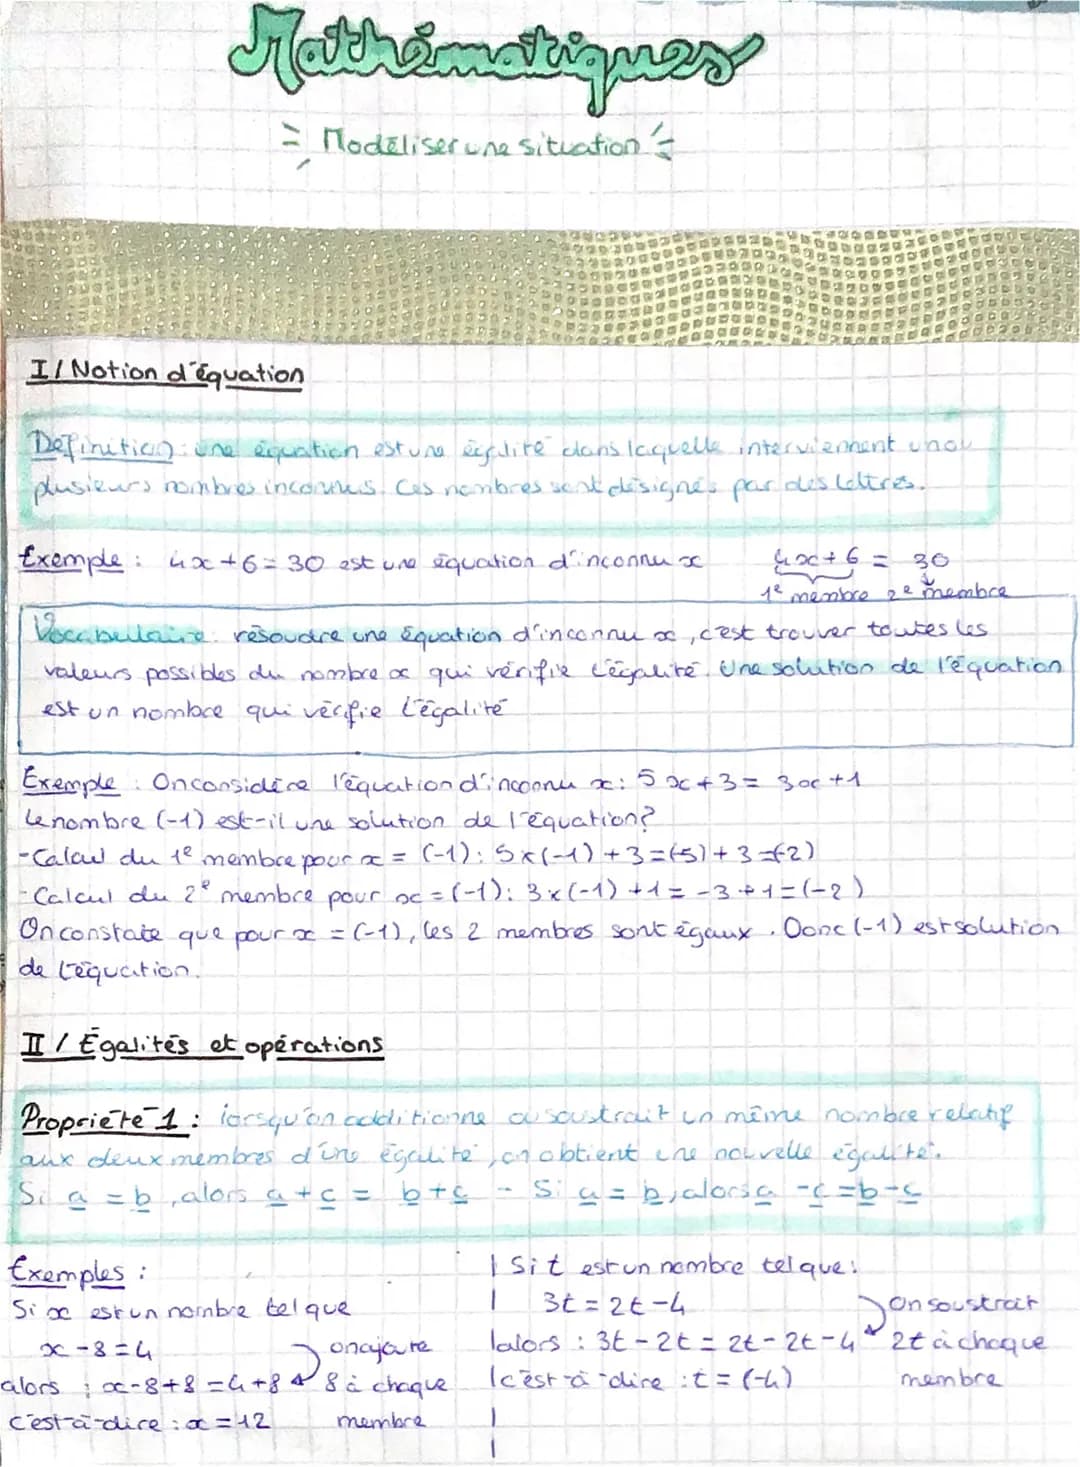 Mathématiques
Modéliser une situation
I/ Notion d'équation
Définition : une équation est une égalité dans laquelle interviennent un ou
plusieurs nombres inconnus. Ces nombres sont désignés par des lettres.
Exemple : 4x+6=30 est une équation d'inconnu x
4x+6 = 30
1e membre 2e membre
Vocabulaire : résoudre une équation d'inconnu x, c'est trouver toutes les
valeurs possibles du nombre x qui vérifie l'égalité. Une solution de l'équation
est un nombre qui vérifie l'égalité
Exemple : On considère l'équation d'inconnu x : 5x+3 = 3x+1
Le nombre (-1) est-il une solution de l'équation?
-Calcul du 1e membre pour x = (-1) : 5x(-1)+3=(-5)+3=(-2)
-Calcul du 2e membre pour x = (-1) : 3x(-1)+1 = -3+1=(-2)
On constate que pour x = (-1), les 2 membres sont égaux. Donc (-1) est solution
de l'équation.
II / Égalités et opérations
Propriété 1 : lorsqu'on additionne ou soustrait un même nombre relatif
aux deux membres d'une égalité, on obtient une nouvelle égalité.
Si a = b, alors a+c = b+c - Si a = b, alors a-c=b-c
Exemples :
Si x est un nombre tel que
x-8=4
alors : x-8+8=4+8
c'est-à-dire : x=12
on ajoute
8 à chaque
membre
Si t est un nombre tel que :
3t = 2t-4
alors : 3t-2t = 2t-2t-4
c'est-à-dire : t = (-4)
On soustrait
2t à chaque
membre